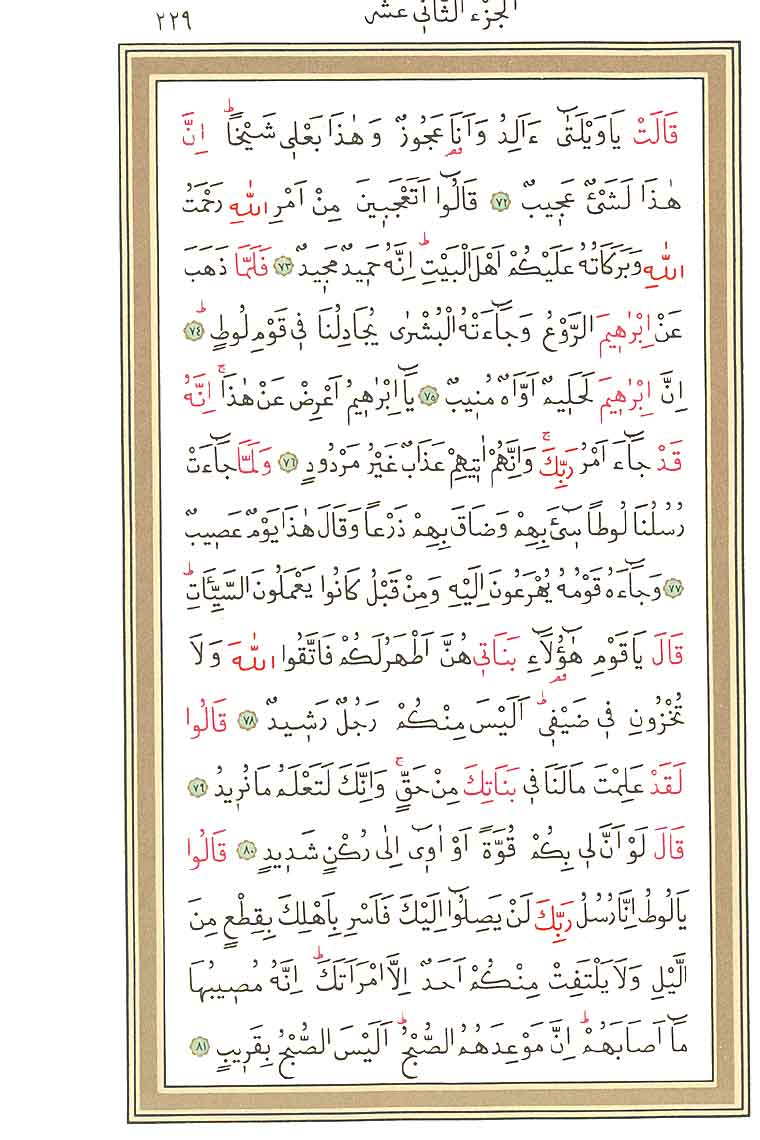 ٢٢٩ الجزء الثانى عشر
قَالَتْ يَاوَيْلَتٰٓى ءَاَلِدُ وَاَنَا۬ عَجُوزٌ وَهٰذَا بَعْلٖى شَيْخًاۜ اِنَّ
هٰذَا لَشَىْءٌ عَجٖيبٌ ﴿٧٢﴾ قَالُٓوا اَتَعْجَبٖينَ مِنْ اَمْرِ اللّٰهِ رَحْمَتُ
اللّٰهِ وَبَرَكَاتُهُ عَلَيْكُمْ اَهْلَ الْبَيْتِۜ اِنَّهُ حَمٖيدٌ مَجٖيدٌ ﴿٧٣﴾ فَلَمَّا ذَهَبَ
عَنْ اِبْرٰهٖيمَ الرَّوْعُ وَجَٓاءَتْهُ الْبُشْرٰى يُجَادِلُنَا فٖى قَوْمِ لُوطٍۜ ﴿٧٤﴾
اِنَّ اِبْرٰهٖيمَ لَحَلٖيمٌ اَوَّاهٌ مُنٖيبٌ ﴿٧٥﴾ يَٓا اِبْرٰهٖيمُ اَعْرِضْ عَنْ هٰذَاۚ اِنَّهُ
قَدْ جَٓاءَ اَمْرُ رَبِّكَۚ وَاِنَّهُمْ اٰتٖيهِمْ عَذَابٌ غَيْرُ مَرْدُودٍ ﴿٧٦﴾ وَلَمَّا جَٓاءَتْ
رُسُلُنَا لُوطًا سٖٓىءَ بِهِمْ وَضَاقَ بِهِمْ ذَرْعًا وَقَالَ هٰذَا يَوْمٌ عَصٖيبٌ
﴿٧٧﴾ وَجَٓاءَهُ قَوْمُهُ يُهْرَعُونَ اِلَيْهِ وَمِنْ قَبْلُ كَانُوا يَعْمَلُونَ السَّيِّـَٔاتِۜ
قَالَ يَاقَوْمِ هٰٓؤُ۬لَٓاءِ بَنَاتٖى هُنَّ اَطْهَرُ لَكُمْ فَاتَّقُوا اللّٰهَ وَلَا
تُخْزُونِ فٖى ضَيْفٖىۜ اَلَيْسَ مِنْكُمْ رَجُلٌ رَشٖيدٌ ﴿٧٨﴾ قَالُوا
لَقَدْ عَلِمْتَ مَا لَنَا فٖى بَنَاتِكَ مِنْ حَقٍّۚ وَاِنَّكَ لَتَعْلَمُ مَا نُرٖيدُ ﴿٧٩﴾
قَالَ لَوْ اَنَّ لٖى بِكُمْ قُوَّةً اَوْ اٰوٖٓى اِلٰى رُكْنٍ شَدٖيدٍ ﴿٨٠﴾ قَالُوا
يَالُوطُ اِنَّا رُسُلُ رَبِّكَ لَنْ يَصِلُٓوا اِلَيْكَ فَاَسْرِ بِاَهْلِكَ بِقِطْعٍ مِنَ
الَّيْلِ وَلَا يَلْتَفِتْ مِنْكُمْ اَحَدٌ اِلَّا امْرَاَتَكَۜ اِنَّهُ مُصٖيبُهَا
مَٓا اَصَابَهُمْۜ اِنَّ مَوْعِدَهُمُ الصُّبْحُۜ اَلَيْسَ الصُّبْحُ بِقَرٖيبٍ ﴿٨١﴾